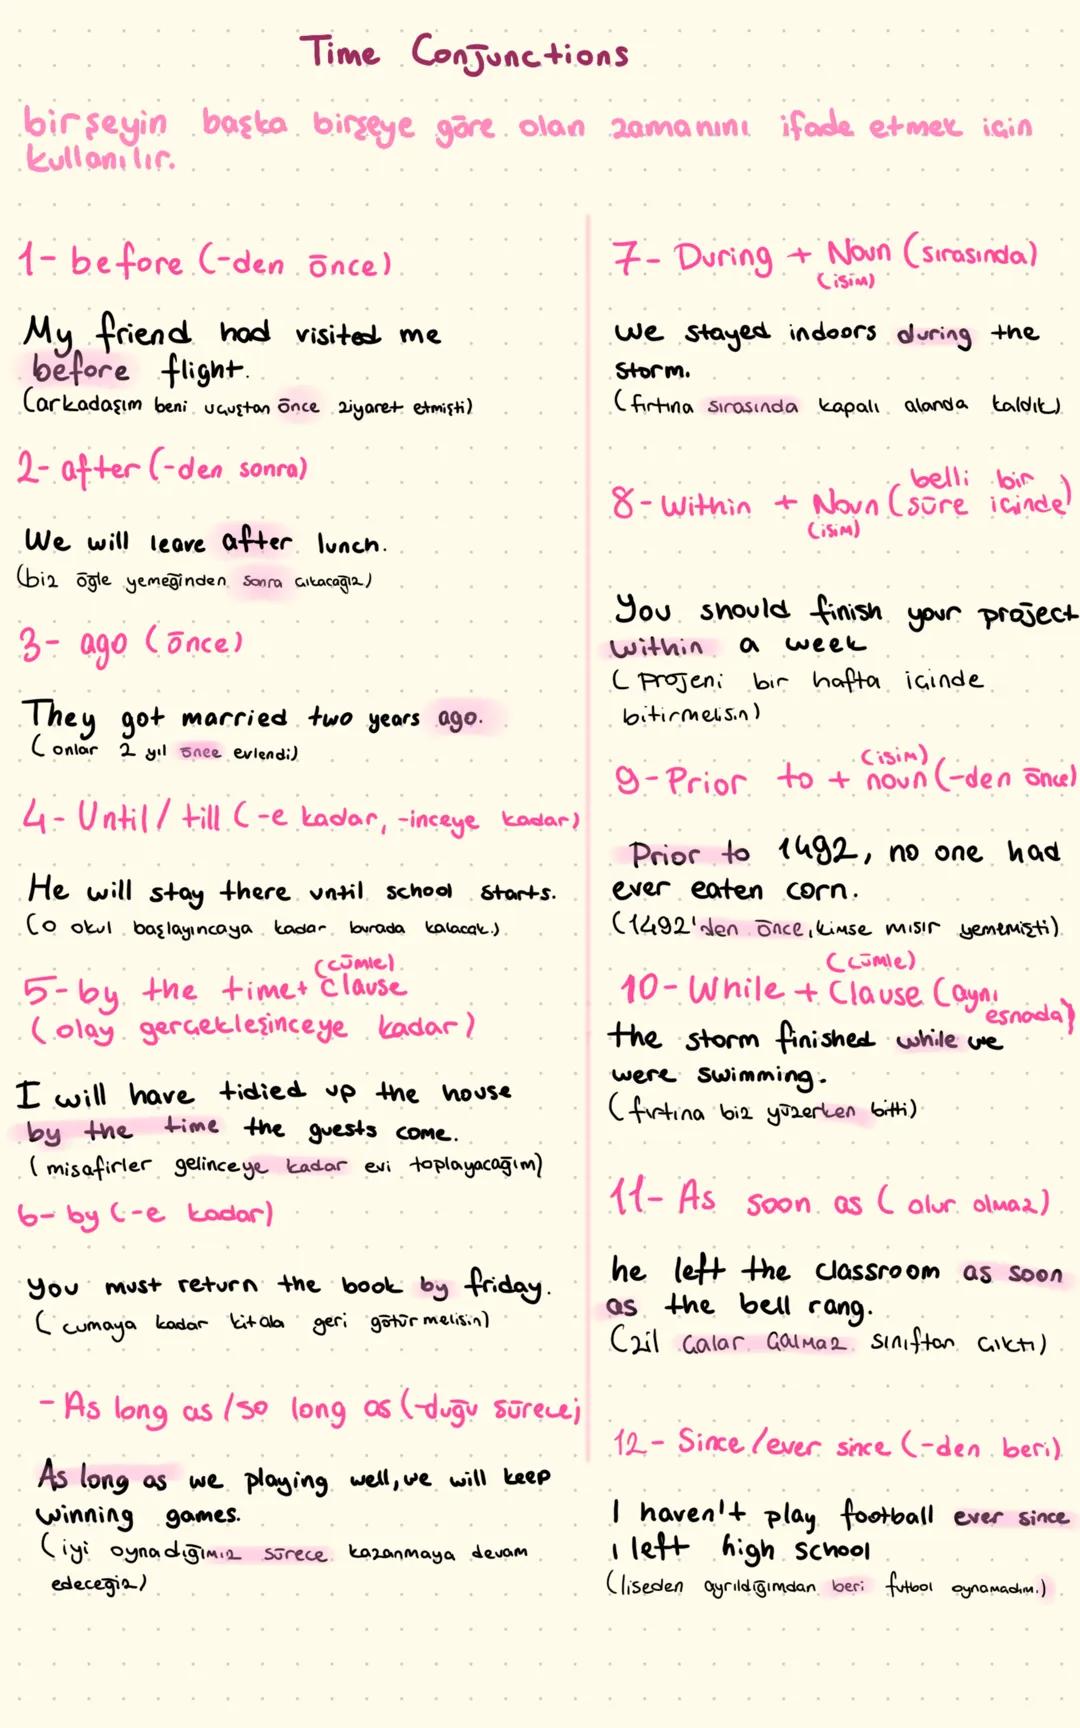 Time Conjunctions
birşeyin başka birşeye göre olan zamanını ifade etmek için
kullanılır.
1- before (-den önce)
My friend had visited me
before flight.
(arkadaşım beni uçuştan önce ziyaret etmişti)
2- after (-den sonra)
We will leave after lunch.
(biz öğle yemeğinden sonra çıkacağız)
3- ago (önce)
They got married two years ago.
(onlar 2 yıl önce evlendi)
4- Until / till (-e kadar, -inceye kadar)
He will stay there until school starts.
(o okul başlayıncaya kadar burada kalacak.)
(cümle)
5- by the time+ clause
(olay gerçekleşinceye kadar)
I will have tidied up the house
by the time the guests come.
(misafirler gelinceye kadar evi toplayacağım)
6- by (-e kadar)
you must return the book by friday.
(cumaya kadar kitabı geri götürmelisin)
- As long as /so long as (-duğu sürece)
As long as we playing well, we will keep
winning games.
(iyi oynadığımız sürece kazanmaya devam
edeceğiz)
7- During + Noun (sırasında)
(isim)
we stayed indoors during the
storm.
(fırtına sırasında kapalı alanda kaldık)
belli bir
8- Within + Noun (süre içinde)
(isim)
You should finish your project
within a week
(projeni bir hafta içinde
bitirmelisin)
(isim)
9- Prior to + noun (-den önce)
Prior to 1492, no one had
ever eaten corn.
(1492'den önce, kimse mısır yememişti)
(cümle)
10- While + Clause (aynı
esnada)
the storm finished while we
were swimming.
(fırtına biz yüzerken bitti)
11- As soon as (olur olmaz)
he left the classroom as soon
as the bell rang.
(zil çalar çalmaz sınıftan çıktı)
12- Since/ever since (-den beri)
I haven't play football ever since
i left high school
(liseden ayrıldığımdan beri futbol oynamadım.)